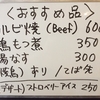 <おすすめ品>
ルビ焼(Beef) 60
鳥もつ煮 350
揚なす 300
豚鳥) すり/てば先
デザート) ストロベリーアイス 250